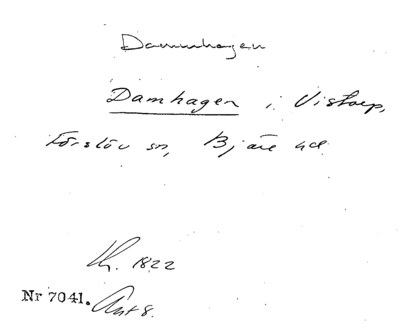 Dammhagen
Damhagen i Vistorp,
Förslöv sn, Bjäre hd
1822
Nr 7041.